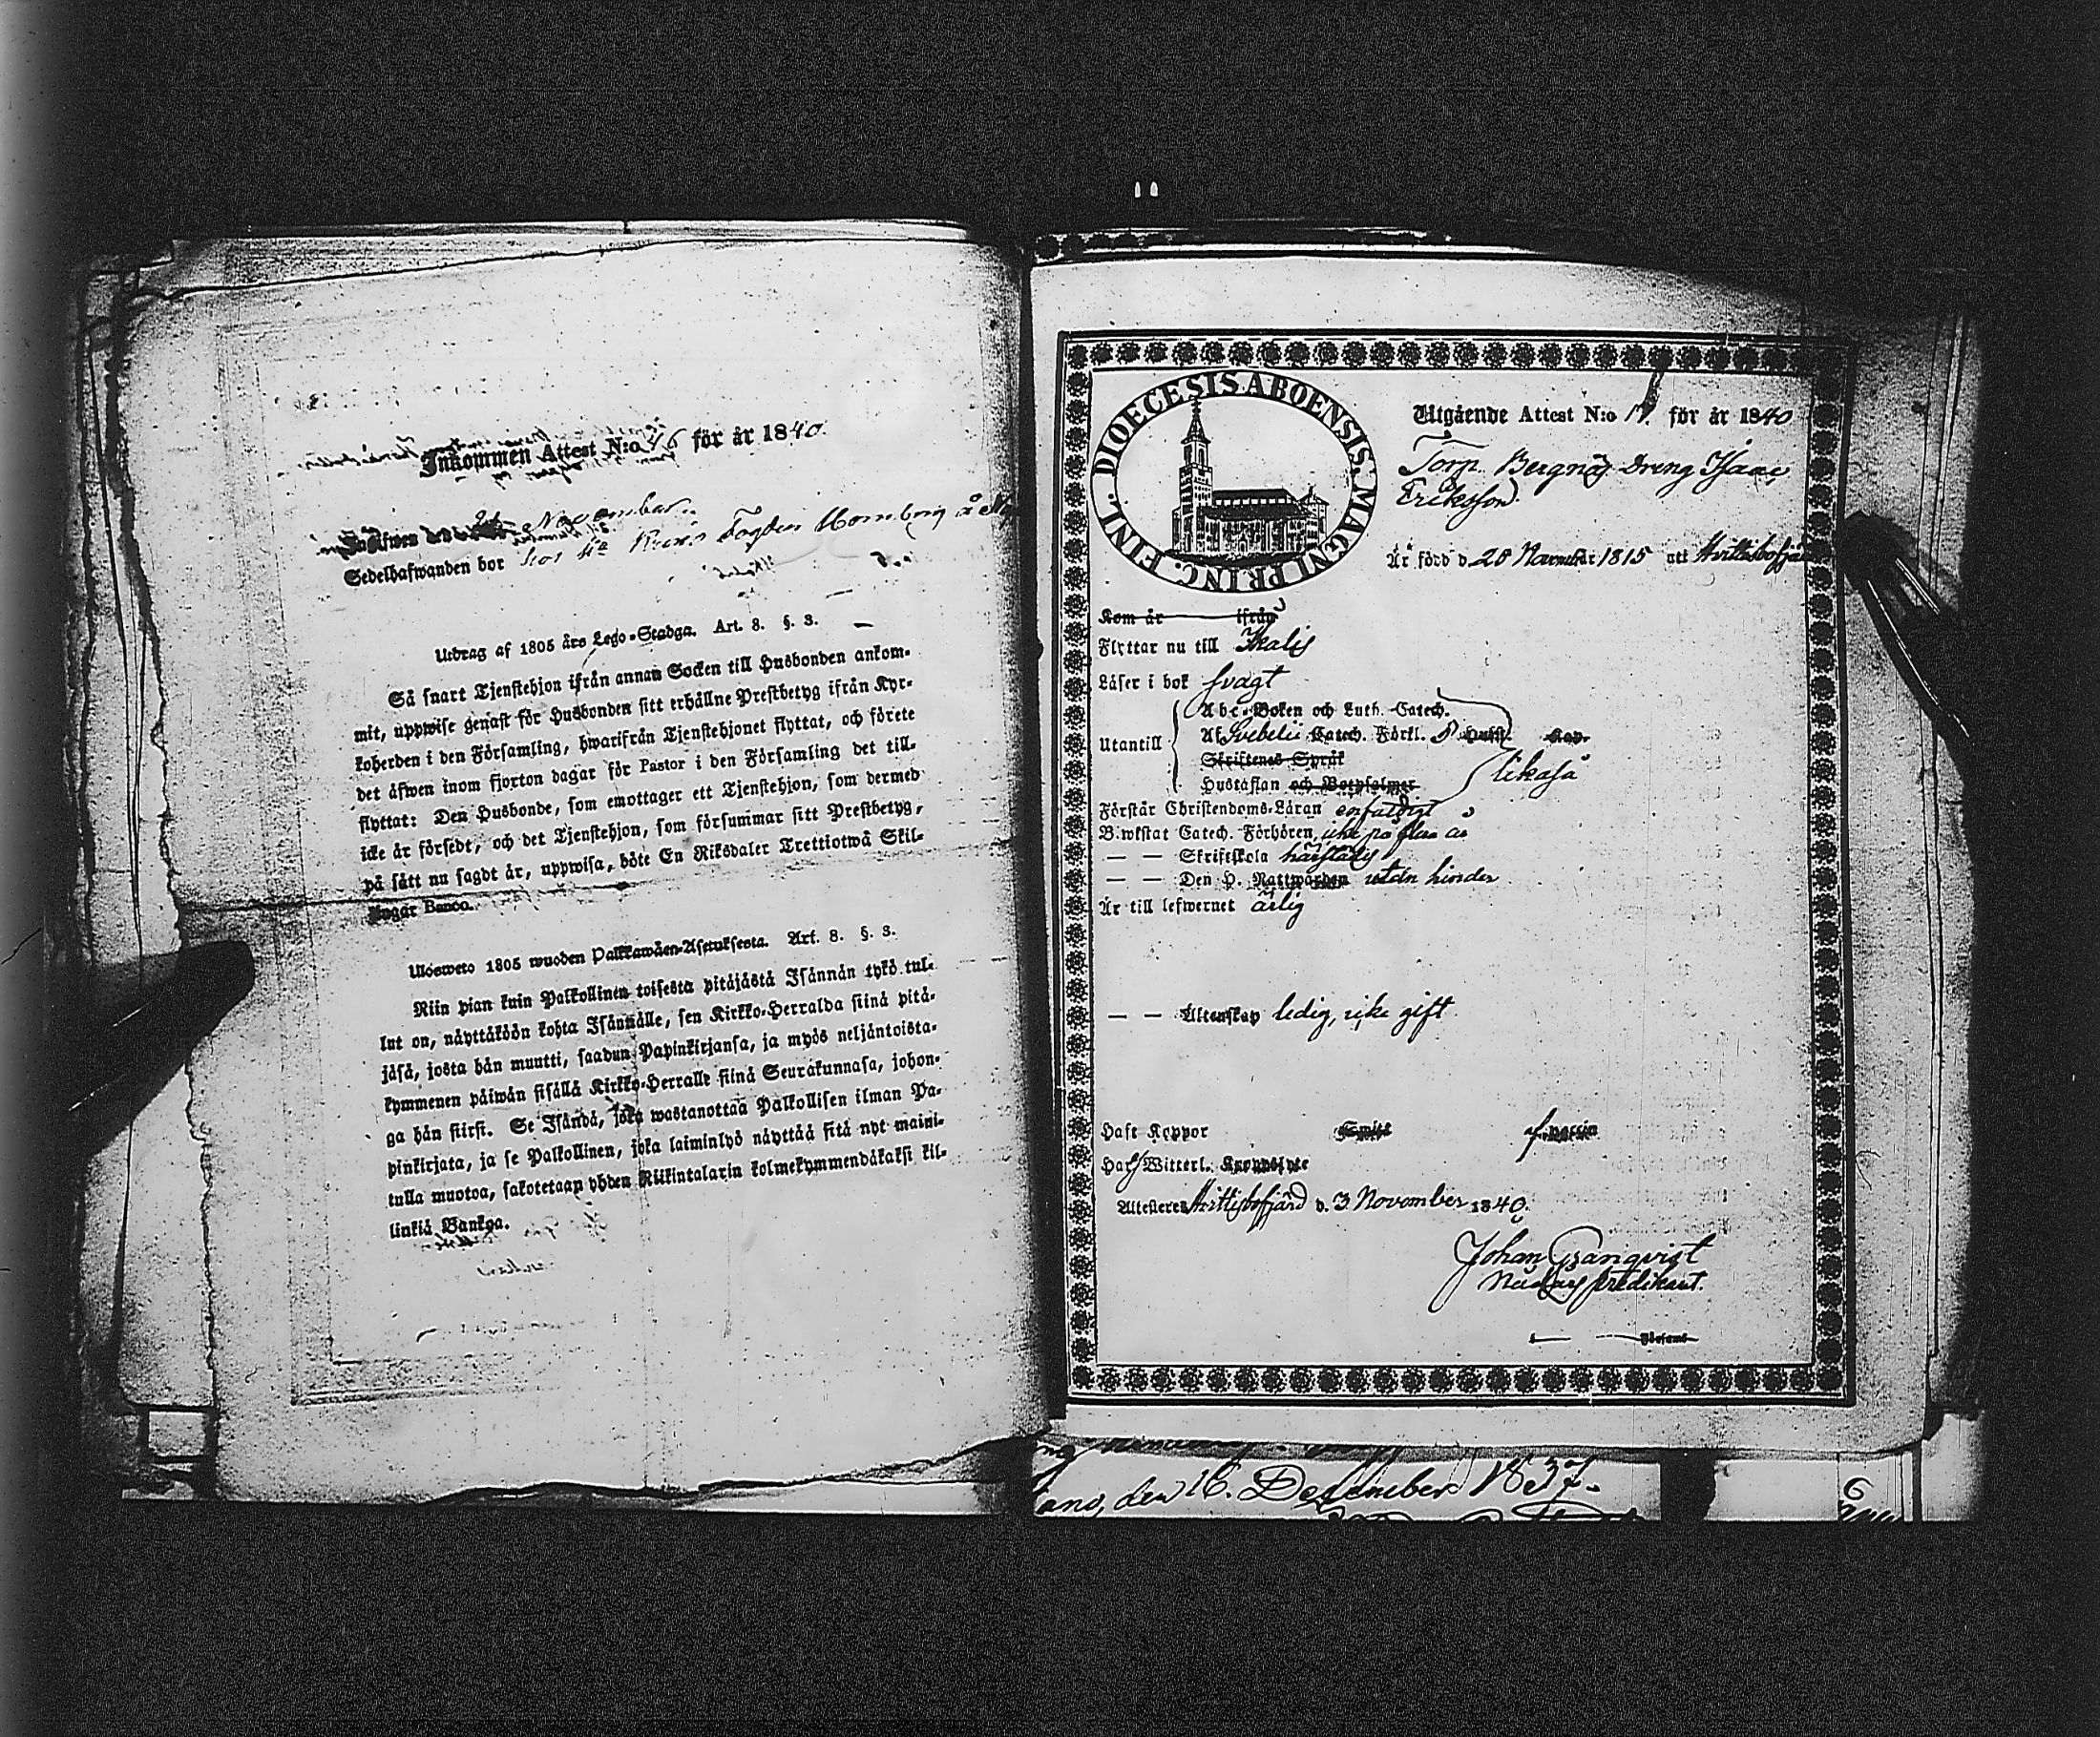 Inkommen Attest N:o 46 för år 1840.
November
Sedelhafwanden bor hos
Utdrag af 1805 års Lego-Stadga. Art. 8. §. 3.
Så snart Tjenstehjon ifrån annan Socken till Husbonden ankom-
mit, uppwise genast för Husbonden sitt erhållne Prestbetyg ifrån Kyr-
koherden i den Församling, hwarifrån Tjenstehjonet flyttat, och förete
det äfwen inom fjorton dagar för Pastor i den Församling det till-
flyttat: Den Husbonde, som emottager ett Tjenstehjon, som dermed
icke är försedt, och det Tjenstehjon, som försummar sitt Prestbetyg,
på sätt nu sagdt är, uppwisa, böte En Riksdaler Trettiotwå Skil-
lingar Banco.
Ulosweto 1805 wuoden Palkkawäen-Asetuksesta. Art. 8. §. 3.
Niin pian kuin Palkollinen toisesta pitäjästä Isännän tykö tul-
lut on, näyttäköön kohta Isännälle, sen Kirkko-Herralda siinä pitä-
jäsä, josta hän muutti, saadun Papinkirjansa, ja myös neljäntoista-
kymmenen päiwän sisällä Kirkko-Herralle siinä Seurakunnasa, johon-
ga hän siirsi. Se Isändä, joka wastanottaa Palkollisen ilman Pa-
pinkirjata, ja se Palkollinen, joka laiminlyö näyttää sitä nyt maini-
tulla muotoa, sakotetaan yhden Riikintalarin kolmekymmendäkaksi kil-
linkiä Bankoa.
DIOECESIS ABOENSIS. MAGNI PRINC. FINL.
Utgående Attest N:o 17. för år 1840
Torp. Bergnäs Dreng Isaac
Eriksson
Är född d. 28 November 1815 att Hvittisbofjärd
Kom år ifrån
Flyttar nu till Ikalis
Läser i bok svagt
Utantill
Abc-Boken och Luth. Catech.
Af Svebelii Catech. Förkl. 5 Huffst. Kap.
Skriftenes Språk
likaså
Hustaflan och Botpsalmer
Förstår Christendoms-Läran enfaldigt
Biwistat Catech. Förhören icke på flera år
— — Skriftskola härstädes
— — Den H. Nattwarden utan hinder
Är till lefwernet ärlig
— — Äktenskap ledig, icke gift
Haft Koppor
Hars Witterl.
Attesteres Hvittisbofjärd d. 3 November 1840.
Johan Granqvist
Nådårs predikant.
Församl.
den 16. December 1837.